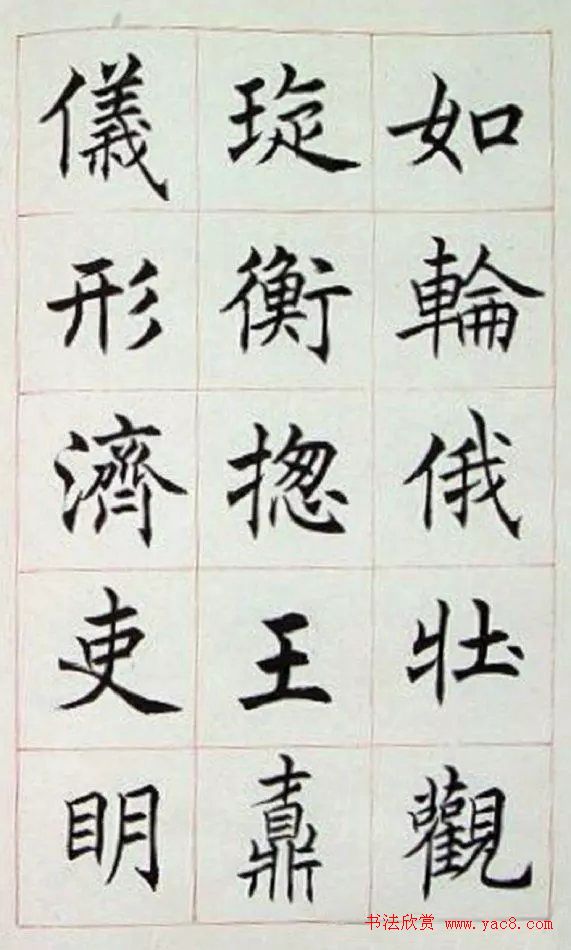 如輪俄壯觀
琁衡揔王
儀形濟吏眀
书法欣赏 www.yac8.com